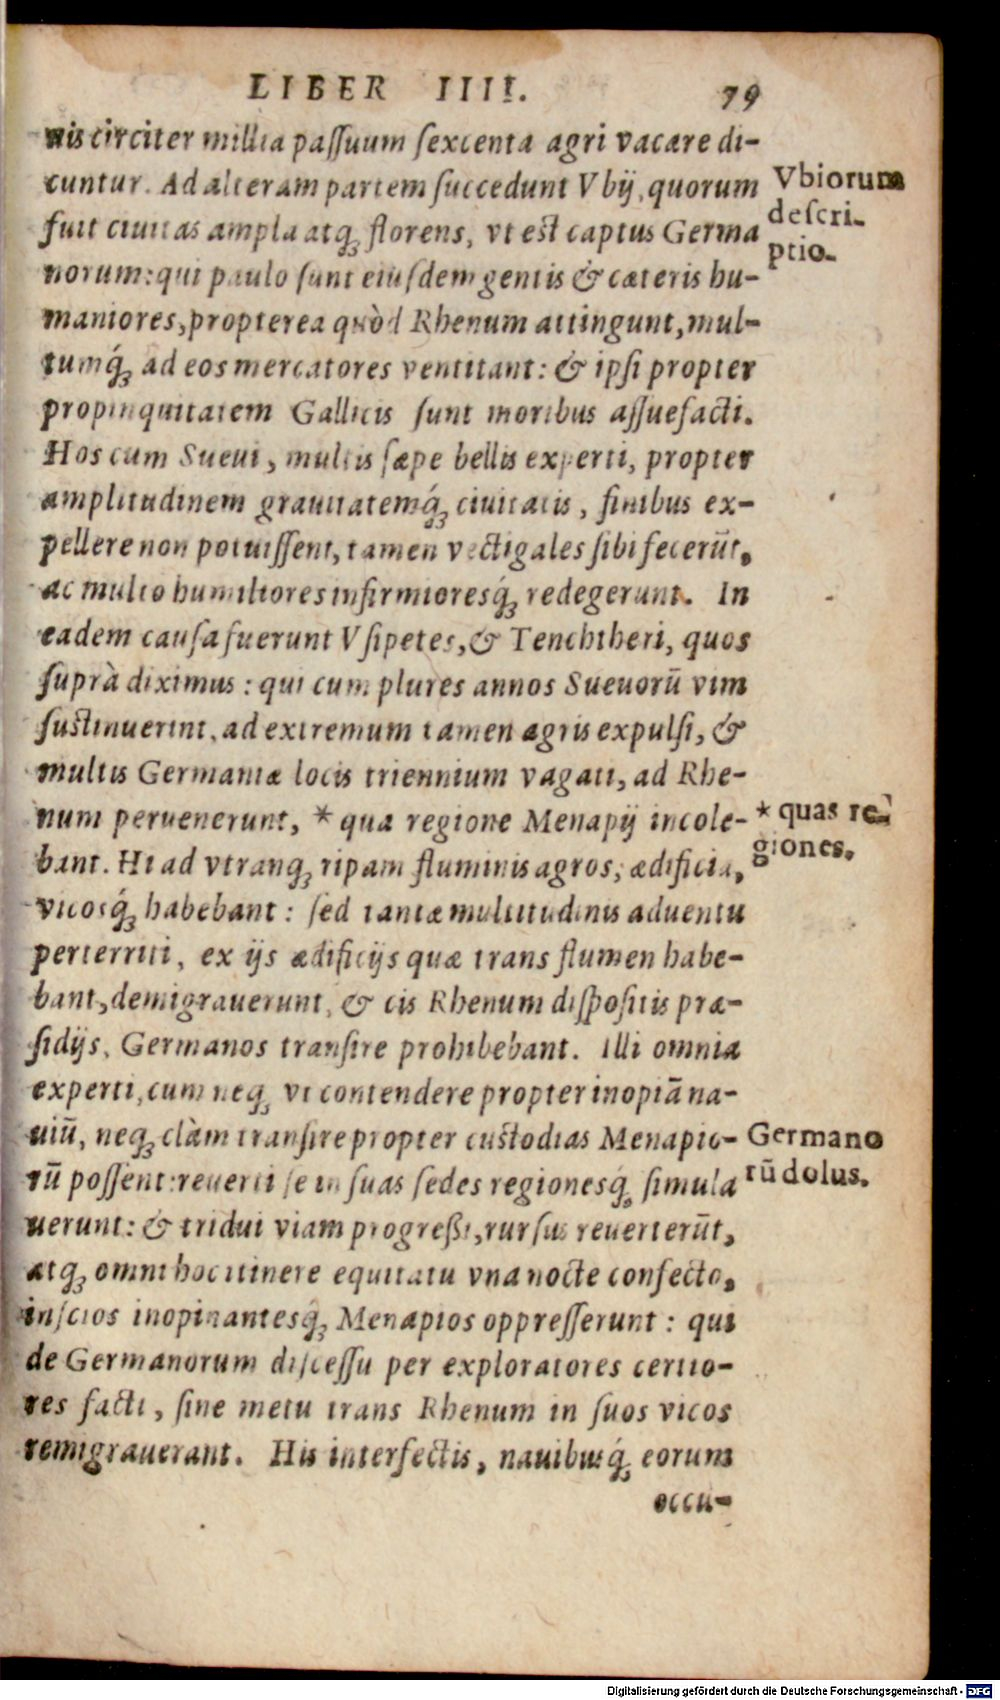 LIBER IIII. 79
nis circiter millia paſſuum ſexcenta agri vacare di-
cuntur. Ad alteram partem ſuccedunt Vbij, quorum
fuit ciuitas ampla atqꝫ florens, vt eſt captus Germa
norum: qui paulo ſunt eiuſdem gentis & cæteris hu-
maniores, propterea quòd Rhenum attingunt, mul-
tumq́ꝫ ad eos mercatores ventitant: & ipſi propter
propinquitatem Gallicis ſunt moribus aſſuefacti.
Hos cum Sueui, multis ſæpe bellis experti, propter
amplitudinem grauitatemq́ꝫ ciuitatis, finibus ex-
pellere non potuiſſent, tamen vectigales ſibi fecerūt,
ac multo humiliores infirmioresq́ꝫ redegerunt. In
eadem cauſa fuerunt Vſipetes, & Tenchtheri, quos
ſuprà diximus: qui cum plures annos Sueuorū vim
ſuſtinuerint, ad extremum tamen agris expulſi, &
multis Germaniæ locis triennium vagati, ad Rhe-
num peruenerunt, * qua regione Menapij incole-
bant. Hi ad vtranqꝫ ripam fluminis agros, ædificia,
vicosq́ꝫ habebant: ſed tantæ multitudinis aduentu
perterriti, ex ijs ædificijs quæ trans flumen habe-
bant, demigrauerunt, & cis Rhenum diſpoſitis præ-
ſidijs, Germanos tranſire prohibebant. Illi omnia
experti, cum neqꝫ vi contendere propter inopiā na-
uiū, neqꝫ clàm tranſire propter cuſtodias Menapio-
rū poſſent: reuerti ſe in ſuas ſedes regionesq́ꝫ ſimula
uerunt: & tridui viam progreßi, rurſus reuerterūt,
atqꝫ omni hoc itinere equitatu vna nocte confecto,
inſcios inopinantesq́ꝫ Menapios oppreſſerunt: qui
de Germanorum diſceſſu per exploratores certio-
res facti, ſine metu trans Rhenum in ſuos vicos
remigrauerant. His interfectis, nauibusq́ꝫ eorum
occu-
Vbiorum
deſcri-
ptio.
* quas re-
giones.
Germano
rū dolus.
Digitalisierung gefördert durch die Deutsche Forschungsgemeinschaft - DFG